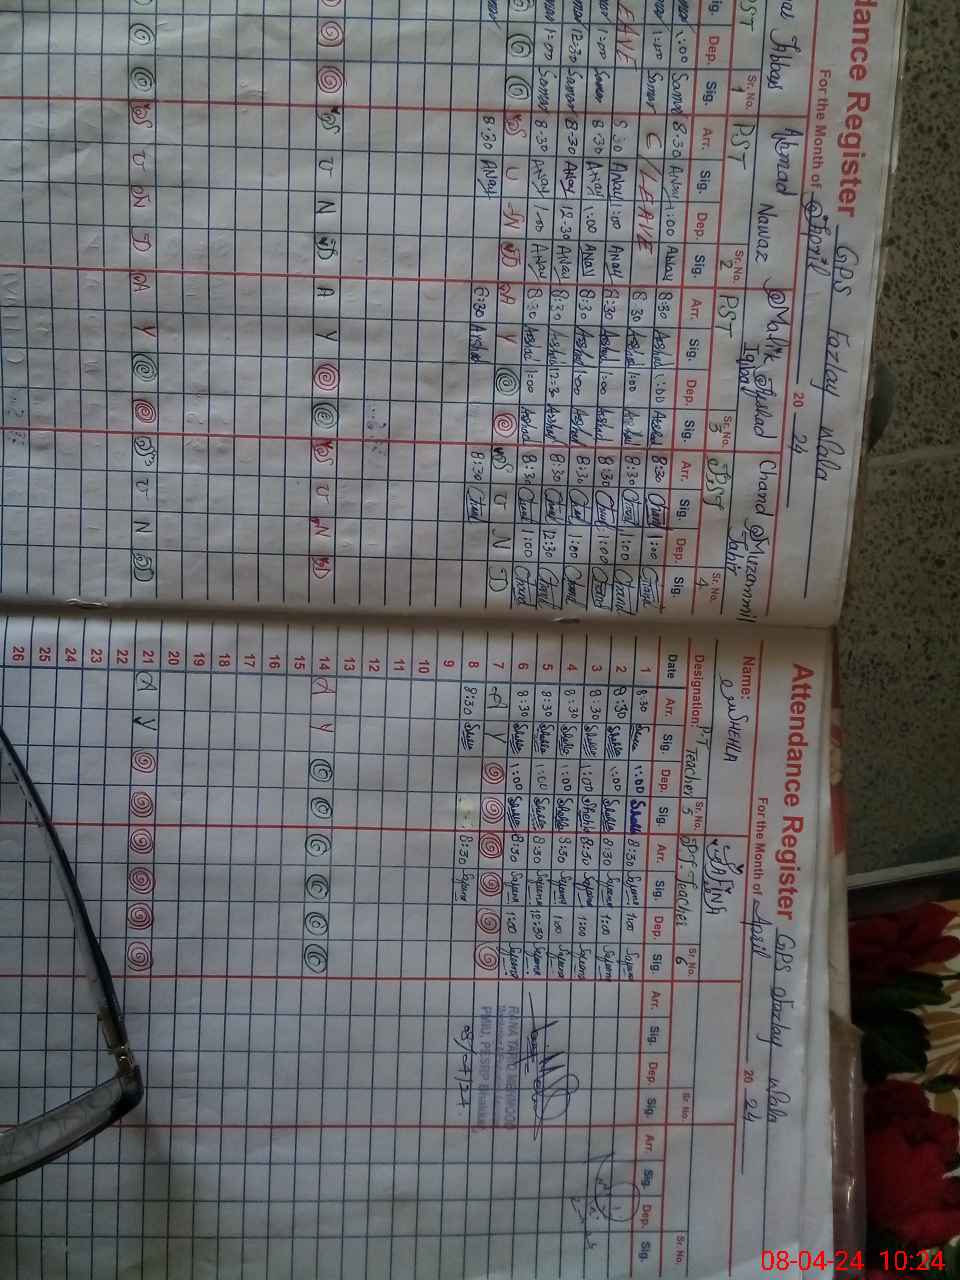 dance Register GPS Fazlay Wala
For the Month of April 20 24
Ahmad Nawaz
Malik Arshad Iqbal
Chand Muzammil Tahir
PST
Sr. No. 1
PST
Sr. No. 2
PST
Sr. No. 3
PST
Sr. No. 4
Dep. Sig. Arr. Sig. Dep. Sig. Arr. Sig. Dep. Sig. Arr. Sig. Dep. Sig.
1:00 Samar 8:30 ANay 1:00 ANay 8:30 Arshad 1:00 Arshad 8:30 Chand 1:00 Chand
1:00 Samar C/LEAVE 8:30 Arshad 1:00 Arshad 8:30 Chand 1:00 Chand
LEAVE 8:30 ANay 1:00 ANay 8:30 Arshad 1:00 Arshad 8:30 Chand 1:00 Chand
1:00 Samar 8:30 ANay 1:00 ANay 8:30 Arshad 1:00 Arshad 8:30 Chand 1:00 Chand
12:30 Samar 8:30 ANay 12:30 ANay 8:30 Arshad 12:30 Arshad 8:30 Chand 12:30 Chand
1:00 Samar 8:30 ANay 1:00 ANay 8:30 Arshad 1:00 Arshad 8:30 Chand 1:00 Chand
S U N D A Y S U N D
8:30 ANay 8:30 Arshad 8:30 Chand
S U N D A Y S U N D
S U N D A Y S U N D
Attendance Register GPS Fazlay Wala
For the Month of April 20 24
Name: SHEHLA SAFINA
Designation: P.T Teacher Sr. No. 5 P.T. Teacher Sr. No. 6 Sr. No. Sr. No.
Date Arr. Sig. Dep. Sig. Arr. Sig. Dep. Sig. Arr. Sig. Dep. Sig. Arr. Sig. Dep. Sig.
1 8:30 Shehla 1:00 Shehla 8:30 Safina 1:00 Safina
2 8:30 Shehla 1:00 Shehla 8:30 Safina 1:00 Safina
3 8:30 Shehla 1:00 Shehla 8:30 Safina 1:00 Safina
4 8:30 Shehla 1:00 Shehla 8:30 Safina 1:00 Safina
5 8:30 Shehla 1:00 Shehla 8:30 Safina 12:30 Safina
6 8:30 Shehla 1:00 Shehla 8:30 Safina 1:00 Safina
7 A Y
8 8:30 Shehla 8:30 Safina
9
10
11
12
13
14 A Y
15
16
17
18
19
20
21 A Y
22
23
24
25
26
RANA TARIQ MEHMOOD
PMIU, PESRP Bhakkar
08/4/24
08-04-24 10:24